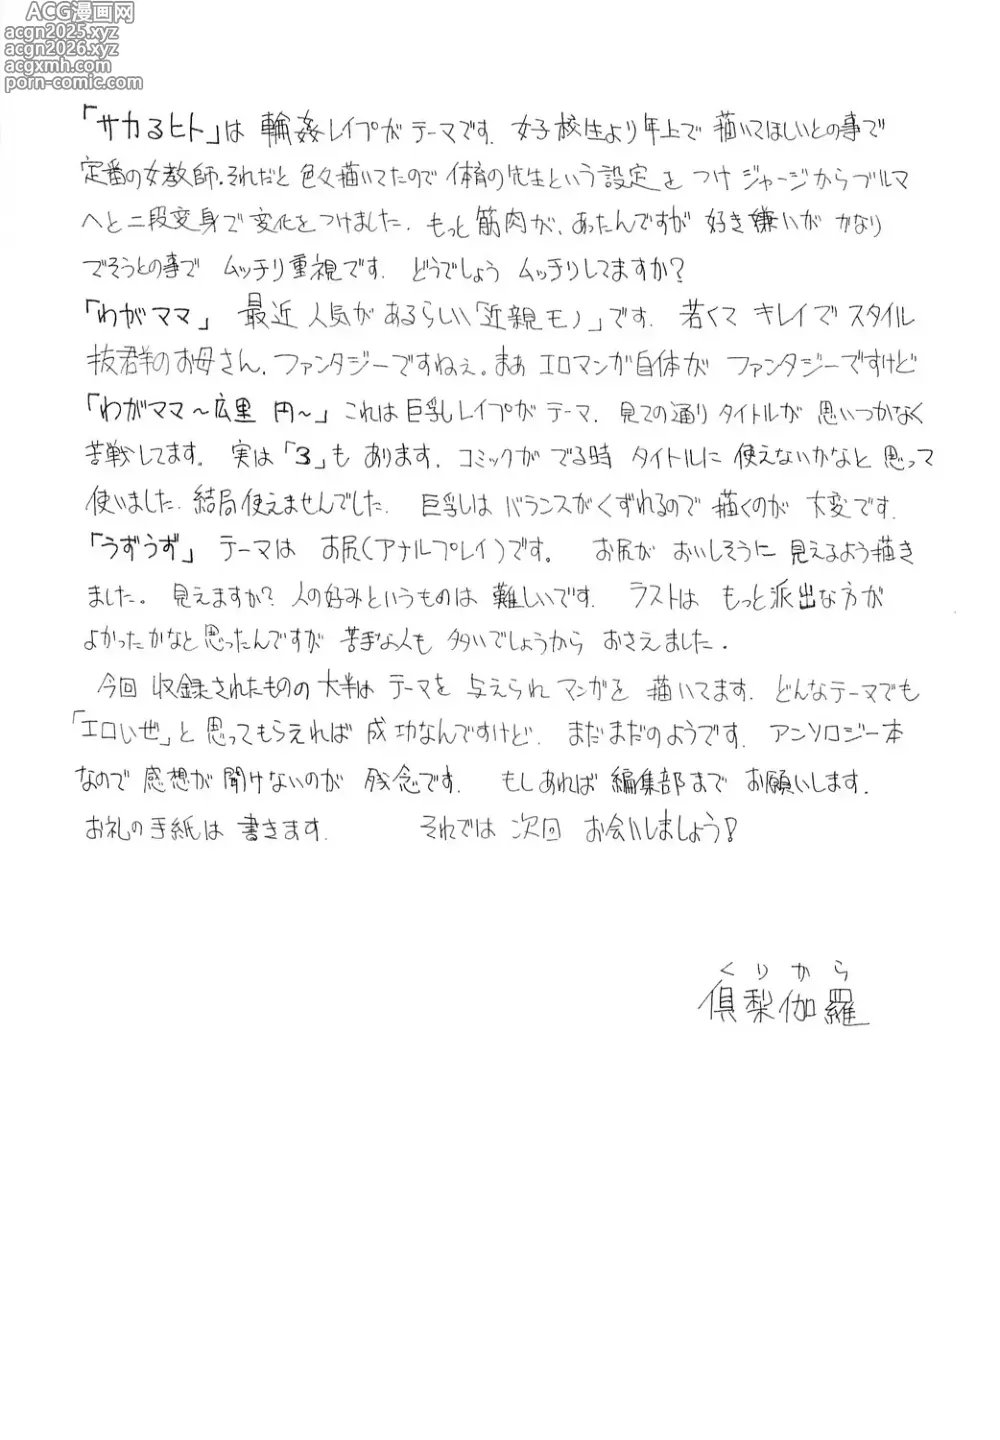 ACG漫画网
acgn2025.xyz
acgn2026.xyz
acgxmh.com
porn-comic.com
「サカるヒト」は 輪姦レイプがテーマです. 女子校生より年上で 描いてほしいとの事で
定番の女教師.それだと 色々描いてたので 体育の先生という設定を つけ ジャージからブルマ
へと二段変身で変化をつけました. もっと筋肉が、あったんですが 好き嫌いが かなり
でそうとの事で ムッチリ重視です. どうでしょう ムッチリしてますか?
「わがママ」 最近 人気が あるらしい「近親モノ」です. 若くて キレイで スタイル
抜群のお母さん. ファンタジーですねぇ。まぁ エロマンガ自体が ファンタジーですけど
「わがママ〜広里 円〜」これは巨乳レイプがテーマ. 見ての通りタイトルが 思いつかなく
苦戦してます。 実は「3」も あります. コミックが でる時 タイトルに 使えないかなと 思って
使いました. 結局使えませんでした. 巨乳は バランスがくずれるので 描くのが 大変です.
「うずうず」 テーマは お尻(アナルプレイ)です。 お尻が おいしそうに 見えるよう描き
ました。 見えますか? 人の好みというものは 難しいです. ラストは もっと派出な方が
よかったかなと思ったんですが 苦手な人も 多いでしょうから おさえました.
今回 収録されたものの 大半は テーマを 与えられ マンガを 描いてます. どんなテーマでも
「エロいぜ」と 思ってもらえれば 成功なんですけど. まだまだのようです. アンソロジー本
なので 感想が 聞けないのが 残念です. もしあれば 編集部まで お願いします.
お礼の手紙は 書きます. それでは 次回 お会いしましょう!
くりから
倶梨伽羅